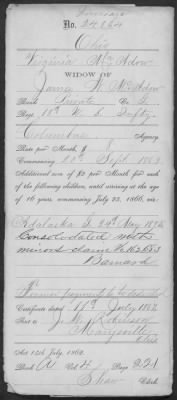 No. 24264
Ohio
Virginia McAdow
WIDOW OF
James W. McAdow
Rank Private Co. G
Reg't 18th U. S. Infty.
Columbus Agency.
Rate per Month, $ 8
Commencing 20th Sept. 1863
Additional sum of $2 per Month for each
of the following children, until arriving at the age
of 16 years, commencing July 25, 1866, viz:
24th May 1872
Consolidated with
minors claim No 162653
Barnard
Former payment to be deducted
Certificate dated July 1864
Sent to J. W. Robinson
Marysville
Ohio
Act 14th July, 1862.
Book A Vol. 4 Page 221
Shaw Clerk.